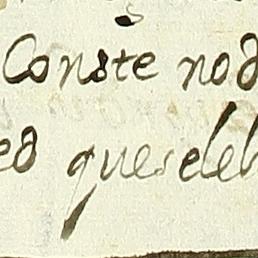 Conste nod
ed queseleh